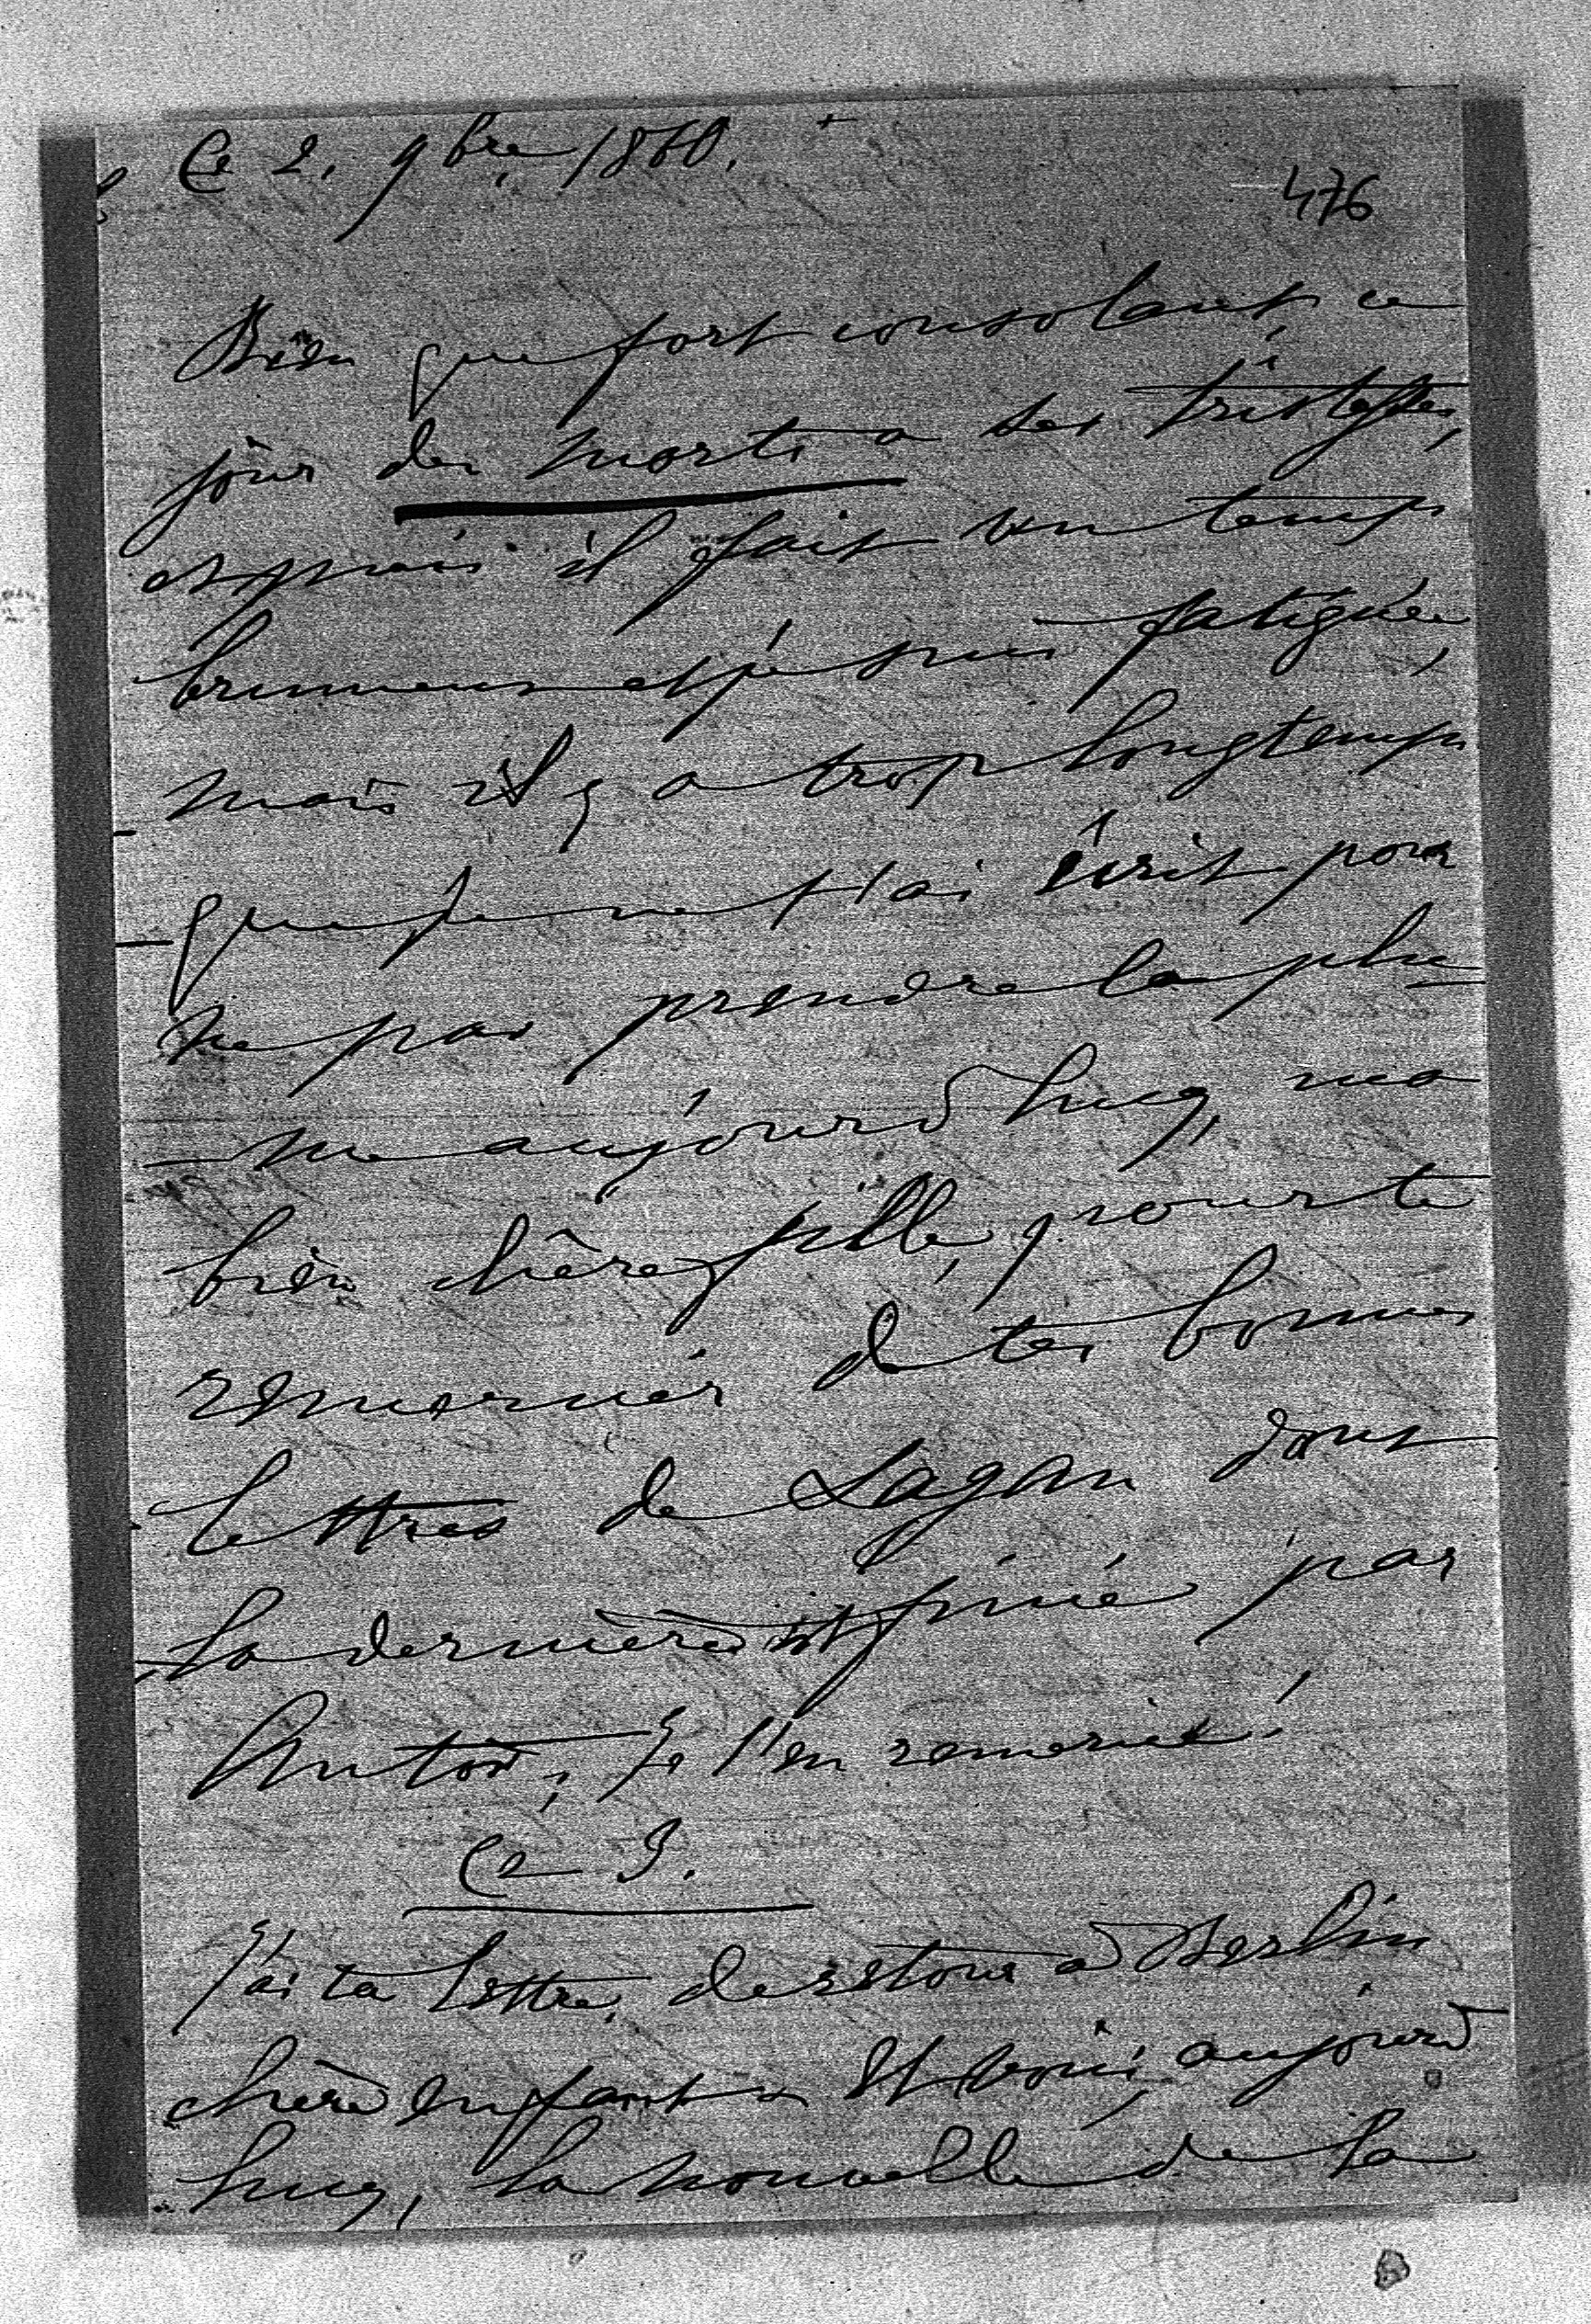 Ce 2. 9bre 1860.
476
Bien que fort consolant, ce
jour des morts a ses tristesses,
et puis il fait un temps
brumeux et je suis fatiguée,
mais il y a trop longtemps
que je ne t'ai écrit pour
ne pas prendre la plu
-me aujourd'huy, ma
bien chère fille, pour te
remercier de tes bonnes
lettres de Sagan dont
la dernière est finie par
Antoi, je l'en remercie!
Ce 3.
J'ai ta lettre de retour à Berlin
chère enfant et voici, aujourd
huy, la nouvelle de la